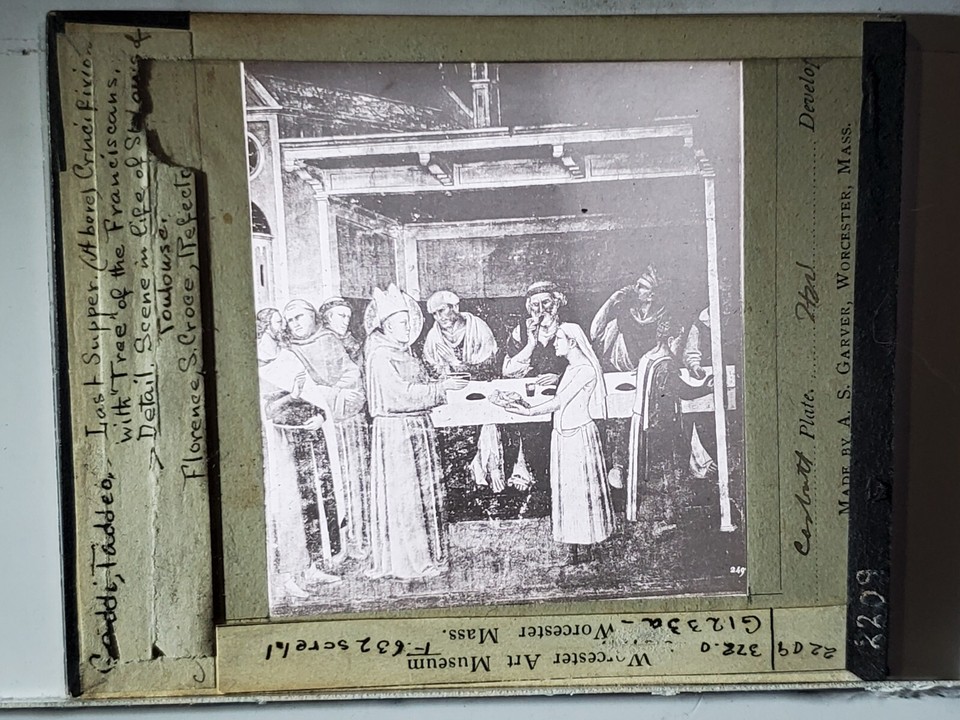 Gaddi, Taddeo, Last Supper. (Above) Crucifixion
with Tree of the Franciscans.
> Detail. Scene in life of St. Louis of
Toulouse.
Florence, S. Croce, Refecto
249
Plate. Develop
MADE BY A. S. GARVER, WORCESTER, MASS.
2209
2209
372.0
G1233a
Worcester Art Museum
Worcester Mass.
F.632